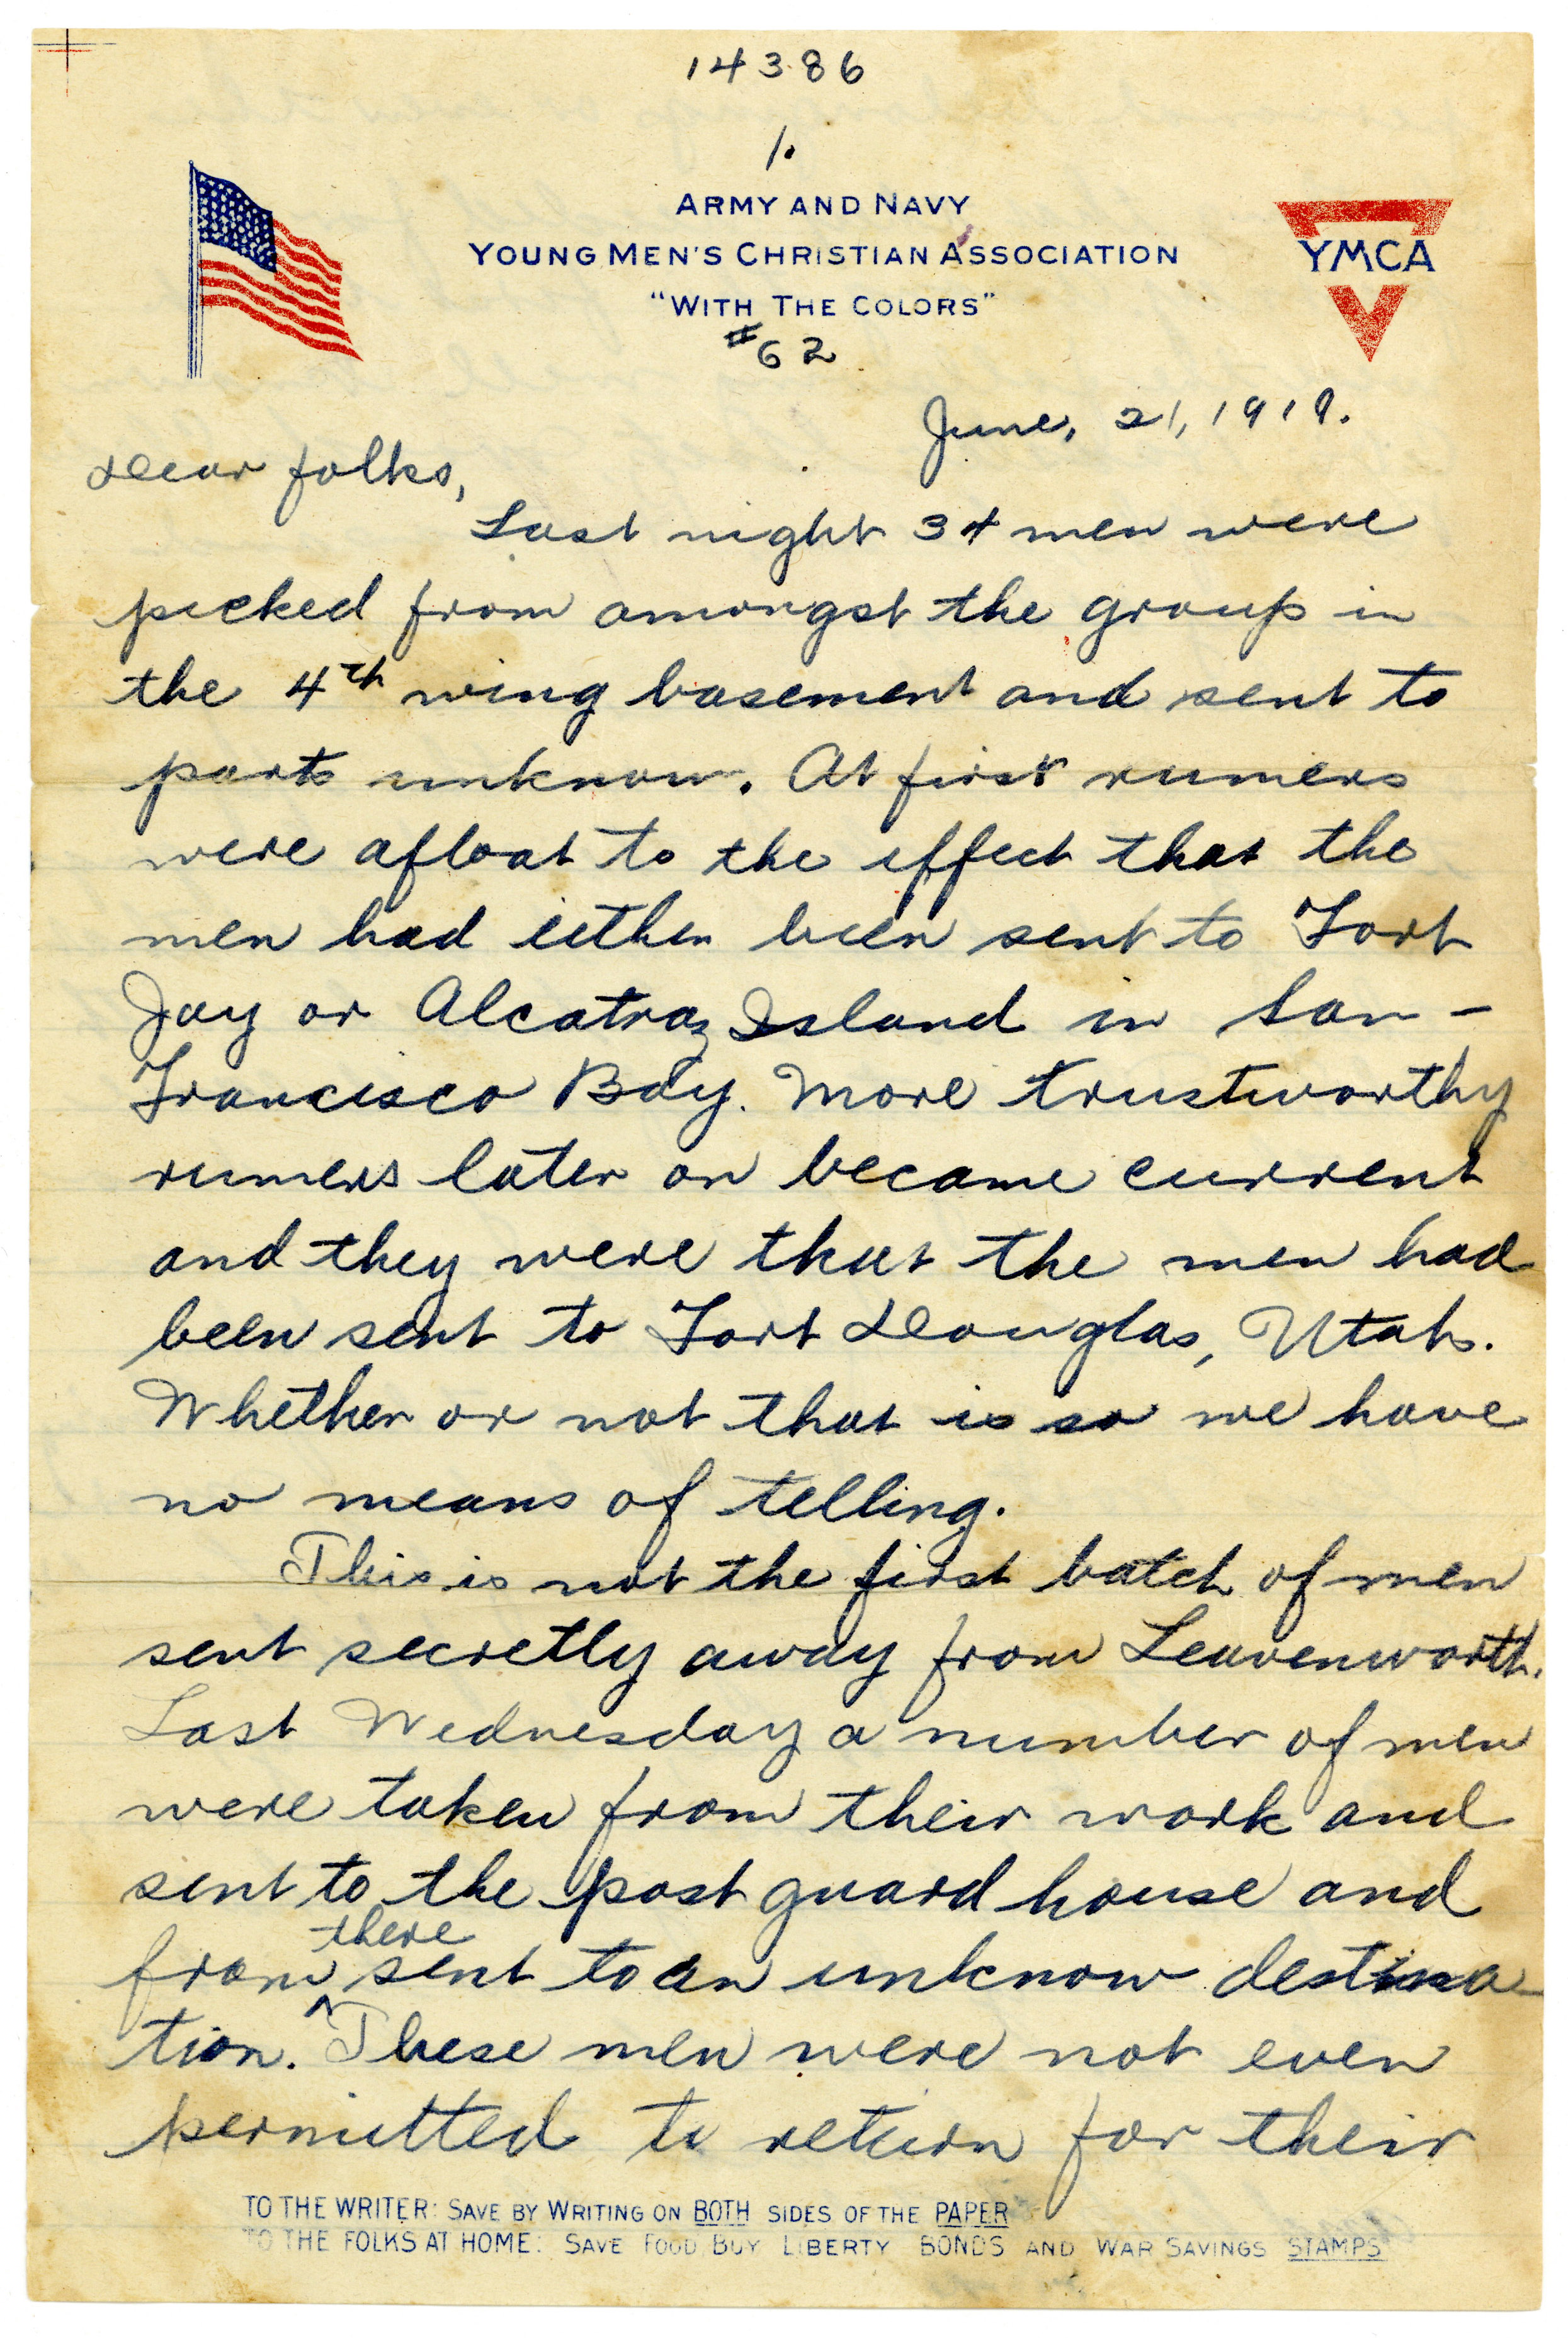 14386
1.
ARMY AND NAVY
YOUNG MEN'S CHRISTIAN ASSOCIATION
"WITH THE COLORS"
YMCA
#62
June, 21, 1919.
Dear folks,
Last night 34 men were
picked from amongst the group in
the 4th wing basement and sent to
parts unknow. At first rumers
were afloat to the effect that the
men had either been sent to Fort
Jay or Alcatraz Island in San-
Francisco Bay. More trustworthy
rumers later on became current
and they were that the men had
been sent to Fort Douglas, Utah.
Whether or not that is so we have
no means of telling.
This is not the first batch of men
sent secretly away from Leavenworth.
Last Wednesday a number of men
were taken from their work and
sent to the post guard house and
from there sent to an unknow destina-
tion. These men were not even
permitted to return for their
TO THE WRITER: SAVE BY WRITING ON BOTH SIDES OF THE PAPER
TO THE FOLKS AT HOME: SAVE FOOD, BUY LIBERTY BONDS AND WAR SAVINGS STAMPS